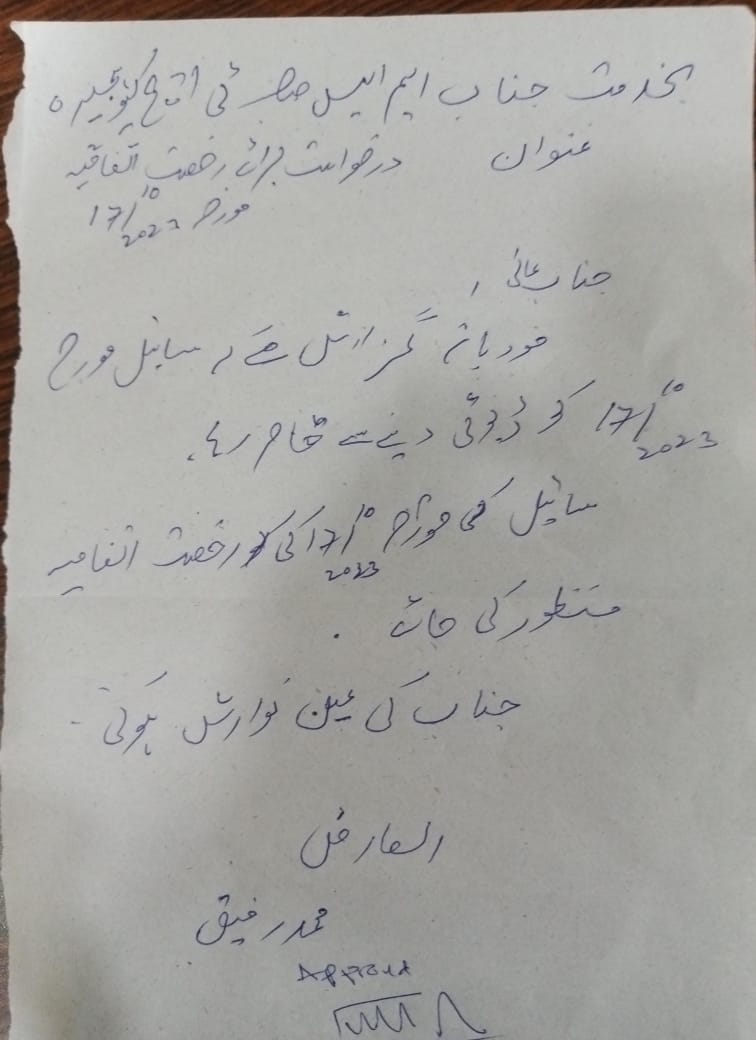 بخدمت جناب ایم ایس صاحب ٹی ایچ کیو
عنوان درخواست برائے رخصت اتفاقیہ
مورخہ 17/10/2023
جناب عالی!
مودبانہ گزارش ہے کہ سائیل مورخہ
17/10/2023 کو ڈیوٹی دینے سے قاصر رہا۔
سائیل کی مورخہ 17/10/2023 کی رخصت اتفاقیہ
منظور کی جائے۔
جناب کی عین نوازش ہوگی۔
العارض
محمد رفیق
Approved